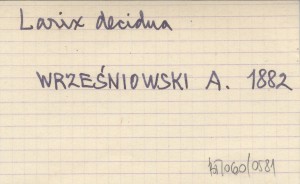 Larix decidua
WRZEŚNIOWSKI A. 1882
060/0581